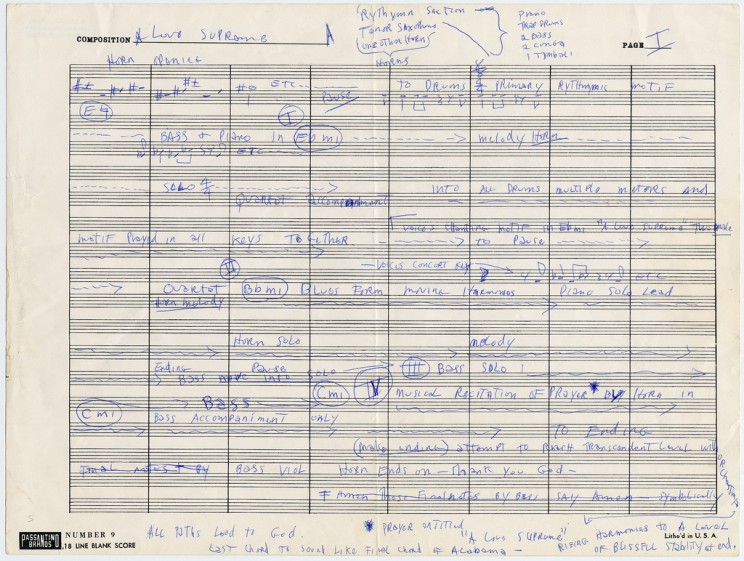 Rythymn Section
Tenor Saxophone
one other horn
Horns
Piano
Trap Drums
2 Bass
2 Conga
1 Timbali
COMPOSITION A Love Supreme
PAGE I
Horn
ETC
Pause
TO DRUMS PRIMARY RyThymic moTiF
I
BASS & Piano in Ebmi melody Horn
ETC
SOLO
Quartet Accompaniment
INTO ALL DRUMS multiple meters and
voices chanting motif in Ebmi "A Love Supreme"
motif Played in all Keys Together to Pause
VOICES CONCERT KEY ETC
II
Quartet Bbmi Blues Form moving Harmonies Piano Solo Lead
Horn melody
Horn Solo melody
Ending Pause SOLO III Bass SOLO
Bass move into
Bass Cmi IV MUSICAL RECITATION OF PRAYER * by HORN in
Cmi Bass Accompaniment ONLY
TO Ending
(make ending) attempt to reach transcendent Level with
ORCHESTRA
Final notes BY BASS VIOL Horn Ends on — Thank you God —
Amen Those Final notes By Bass SAY Amen — symbolically
ALL paths Lead to God.
* PRAYER entitled "A Love SUPREME"
RISING HARMONIES TO A LEVEL
OF BLISSFUL STABILITY at end.
Last Chord to sound Like Final Chord of Alabama —
PASSANTINO BRANDS
NUMBER 9
18 LINE BLANK SCORE
Litho'd in U. S. A.